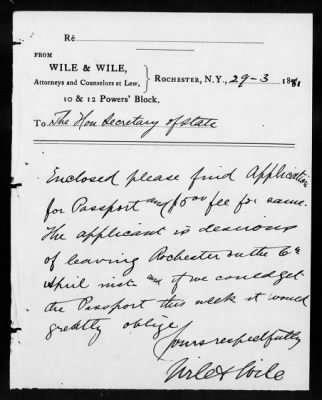 Re
FROM
WILE & WILE,
Attorneys and Counselors at Law,
10 & 12 Powers' Block.
ROCHESTER, N.Y., 29-3 1881
To The Hon Secretary of State
Enclosed please find Application
for Passport and $5 00 fee for same.
The applicant is desirous
of leaving Rochester on the 6th
April inst and if we could get
the Passport this week it would
greatly oblige
Yours respectfully
Wile & Wile